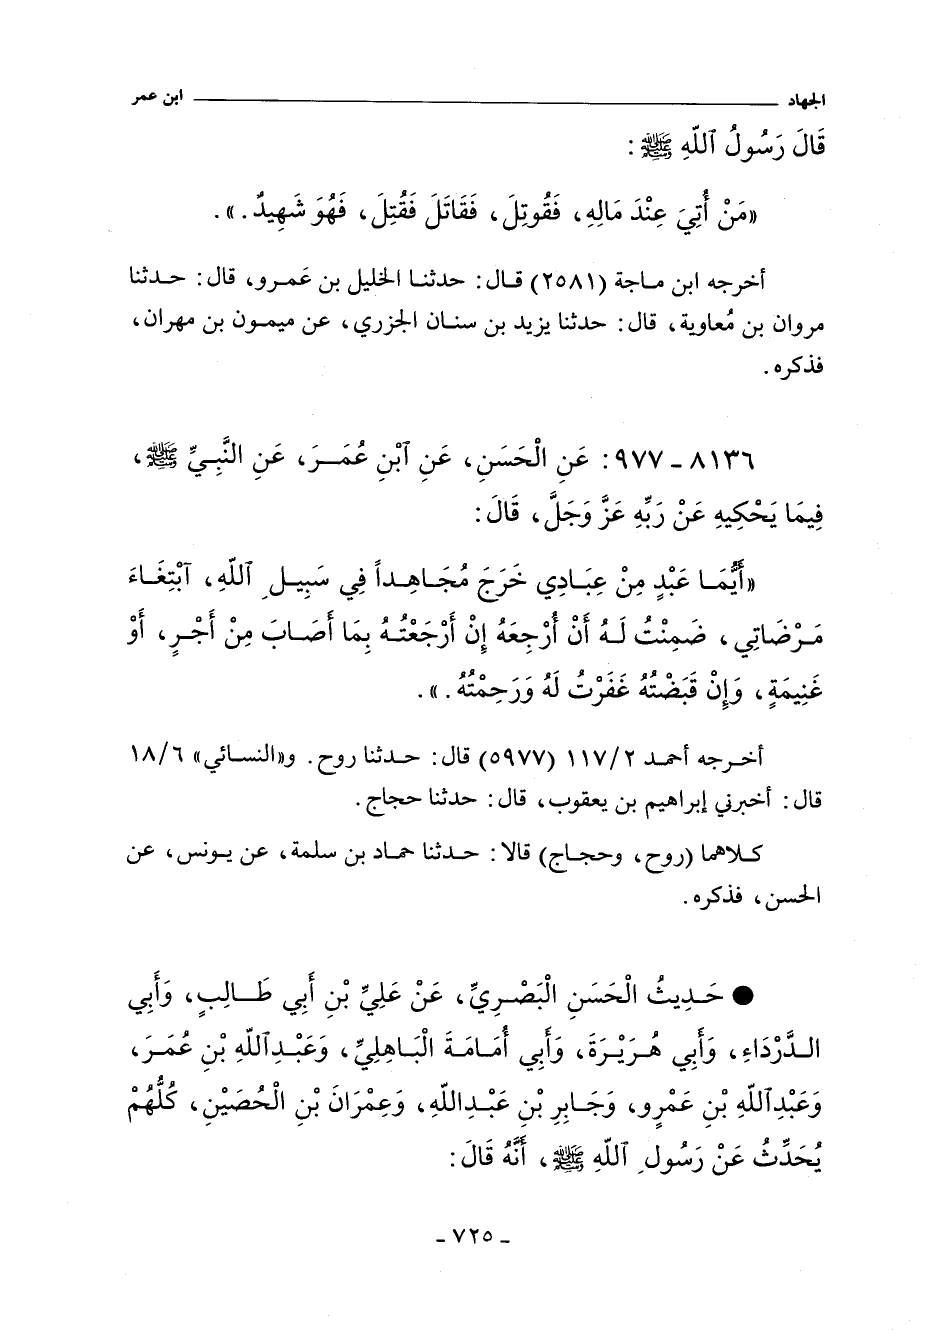 الجهاد ابن عمر
قَالَ رَسُولُ ٱللّهِ ﷺ :
«مَنْ أُتِيَ عِنْدَ مَالِهِ، فَقُوتِلَ، فَقَاتَلَ فَقُتِلَ، فَهُوَ شَهِيدٌ.».
أخرجه ابن ماجة (٢٥٨١) قال: حدثنا الخليل بن عَمرو، قال: حدثنا
مروان بن مُعاوية، قال: حدثنا يزيد بن سنان الجزري، عن ميمون بن مهران،
فذكره.
٨١٣٦ ـ ٩٧٧: عَنِ الْحَسَنِ، عَنِ ٱبْنِ عُمَرَ، عَنِ النَّبِيِّ ﷺ،
فِيمَا يَحْكِيهِ عَنْ رَبِّهِ عَزَّ وَجَلَّ، قَالَ:
«أَيُّمَا عَبْدٍ مِنْ عِبَادِي خَرَجَ مُجَاهِداً فِي سَبِيلِ ٱللّهِ، ٱبْتِغَاءَ
مَرْضَاتِي، ضَمِنْتُ لَهُ أَنْ أُرْجِعَهُ إِنْ أَرْجَعْتُهُ بِمَا أَصَابَ مِنْ أَجْرٍ، أَوْ
غَنِيمَةٍ، وَإِنْ قَبَضْتُهُ غَفَرْتُ لَهُ وَرَحِمْتُهُ.».
أخرجه أحمد ١١٧/٢ (٥٩٧٧) قال: حدثنا روح. و«النسائي» ١٨/٦
قال: أخبرني إبراهيم بن يعقوب، قال: حدثنا حجاج.
كلاهما (روح، وحجاج) قالا: حدثنا حماد بن سلمة، عن يونس، عن
الحسن، فذكره.
● حَدِيثُ الْحَسَنِ الْبَصْرِيِّ، عَنْ عَلِيِّ بْنِ أَبِي طَالِبٍ، وَأَبِي
الدَّرْدَاءِ، وَأَبِي هُرَيْرَةَ، وَأَبِي أُمَامَةَ الْبَاهِلِيِّ، وَعَبْدِٱللّهِ بْنِ عُمَرَ،
وَعَبْدِٱللّهِ بْنِ عَمْرٍو، وَجَابِرِ بْنِ عَبْدِاللّهِ، وَعِمْرَانَ بْنِ الْحُصَيْنِ، كُلُّهُمْ
يُحَدِّثُ عَنْ رَسُولِ ٱللّهِ ﷺ، أَنَّهُ قَالَ:
ـ ٧٢٥ ـ